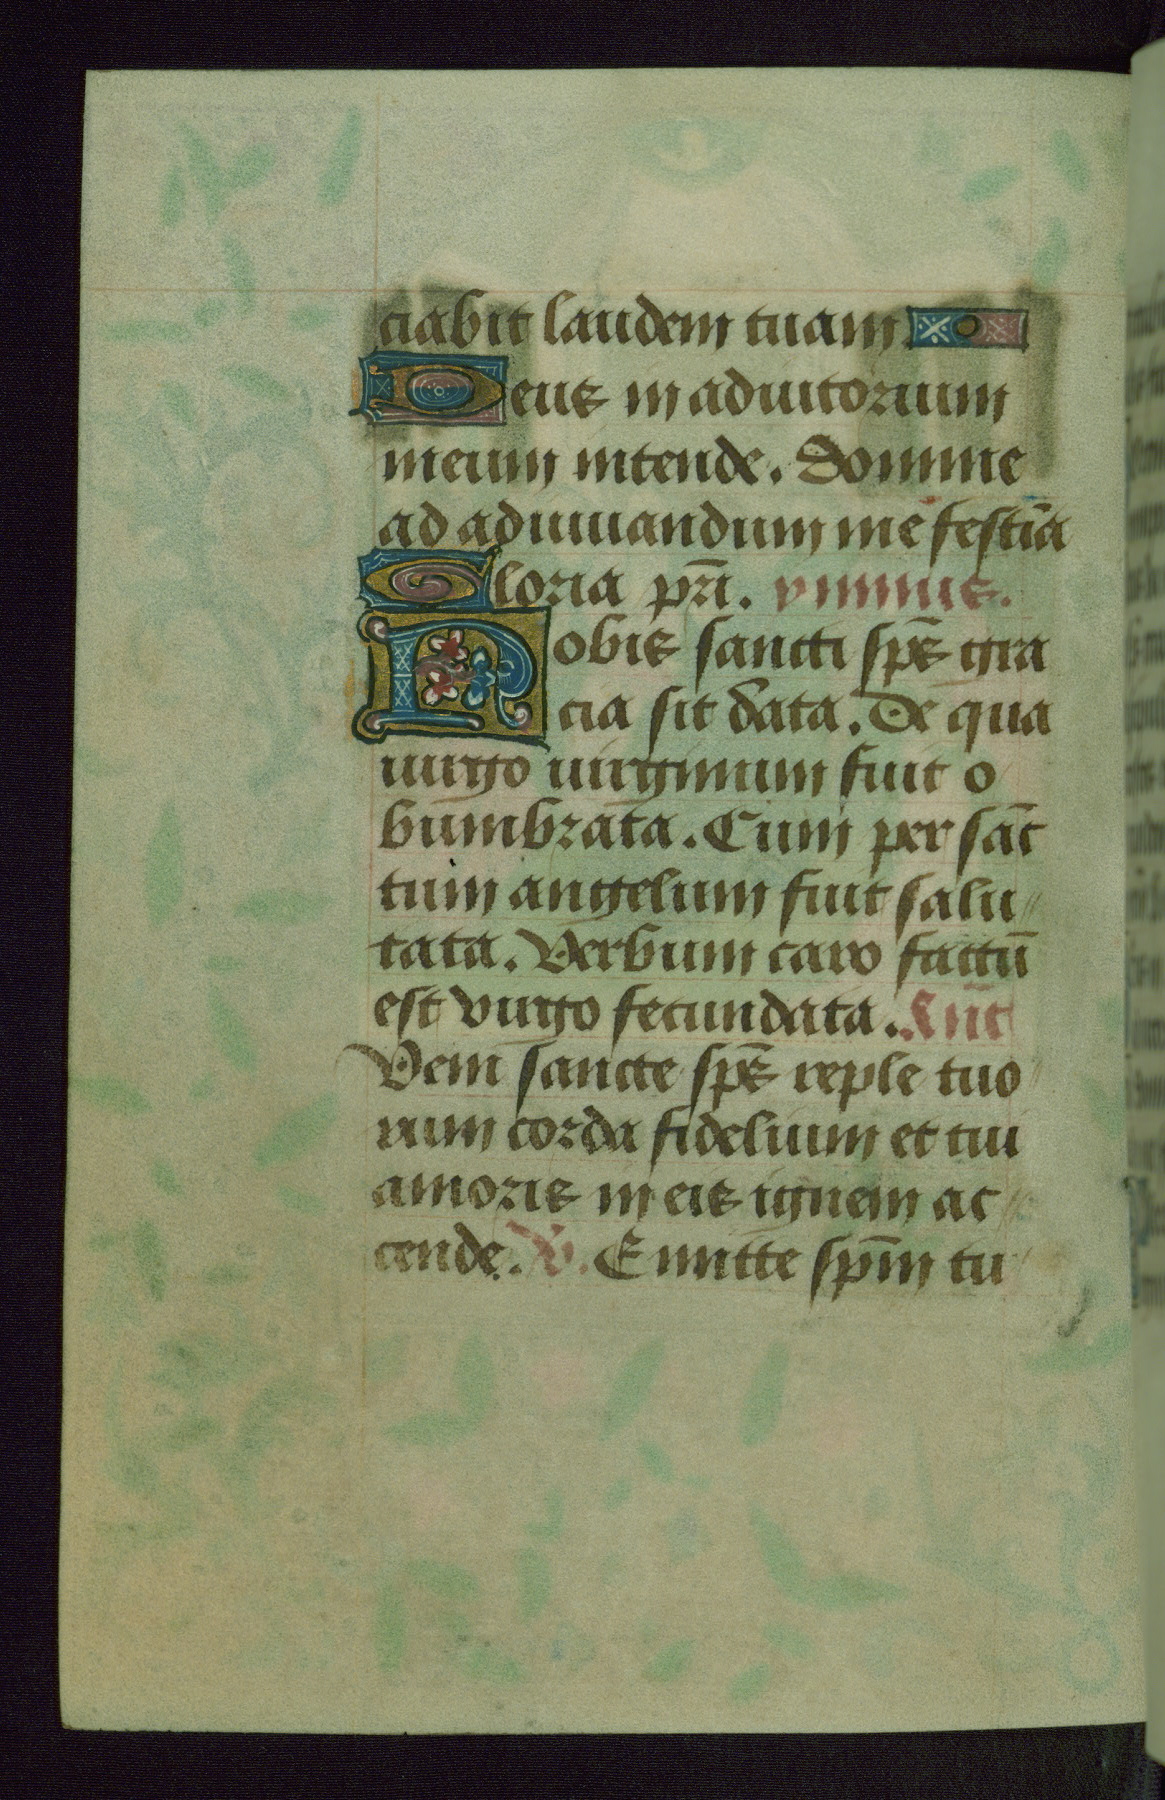 ciabit laudem tuam.
Deus in adiutorium
meum intende. Domine
ad adiuuandum me festīa
Gloria pr̄i. ymnus.
Nobis sancti sp̄s gra
cia sit data. De qua
uirgo uirginum fuit o
bumbrata. Cum per sāc
tum angelum fuit salu
tata. Verbum caro factū
est virgo fecundata. Añt
Veni sancte sp̄s reple tuo
rum corda fidelium et tui
amoris in eis ignem ac
cende. V. Emitte sp̄m tu